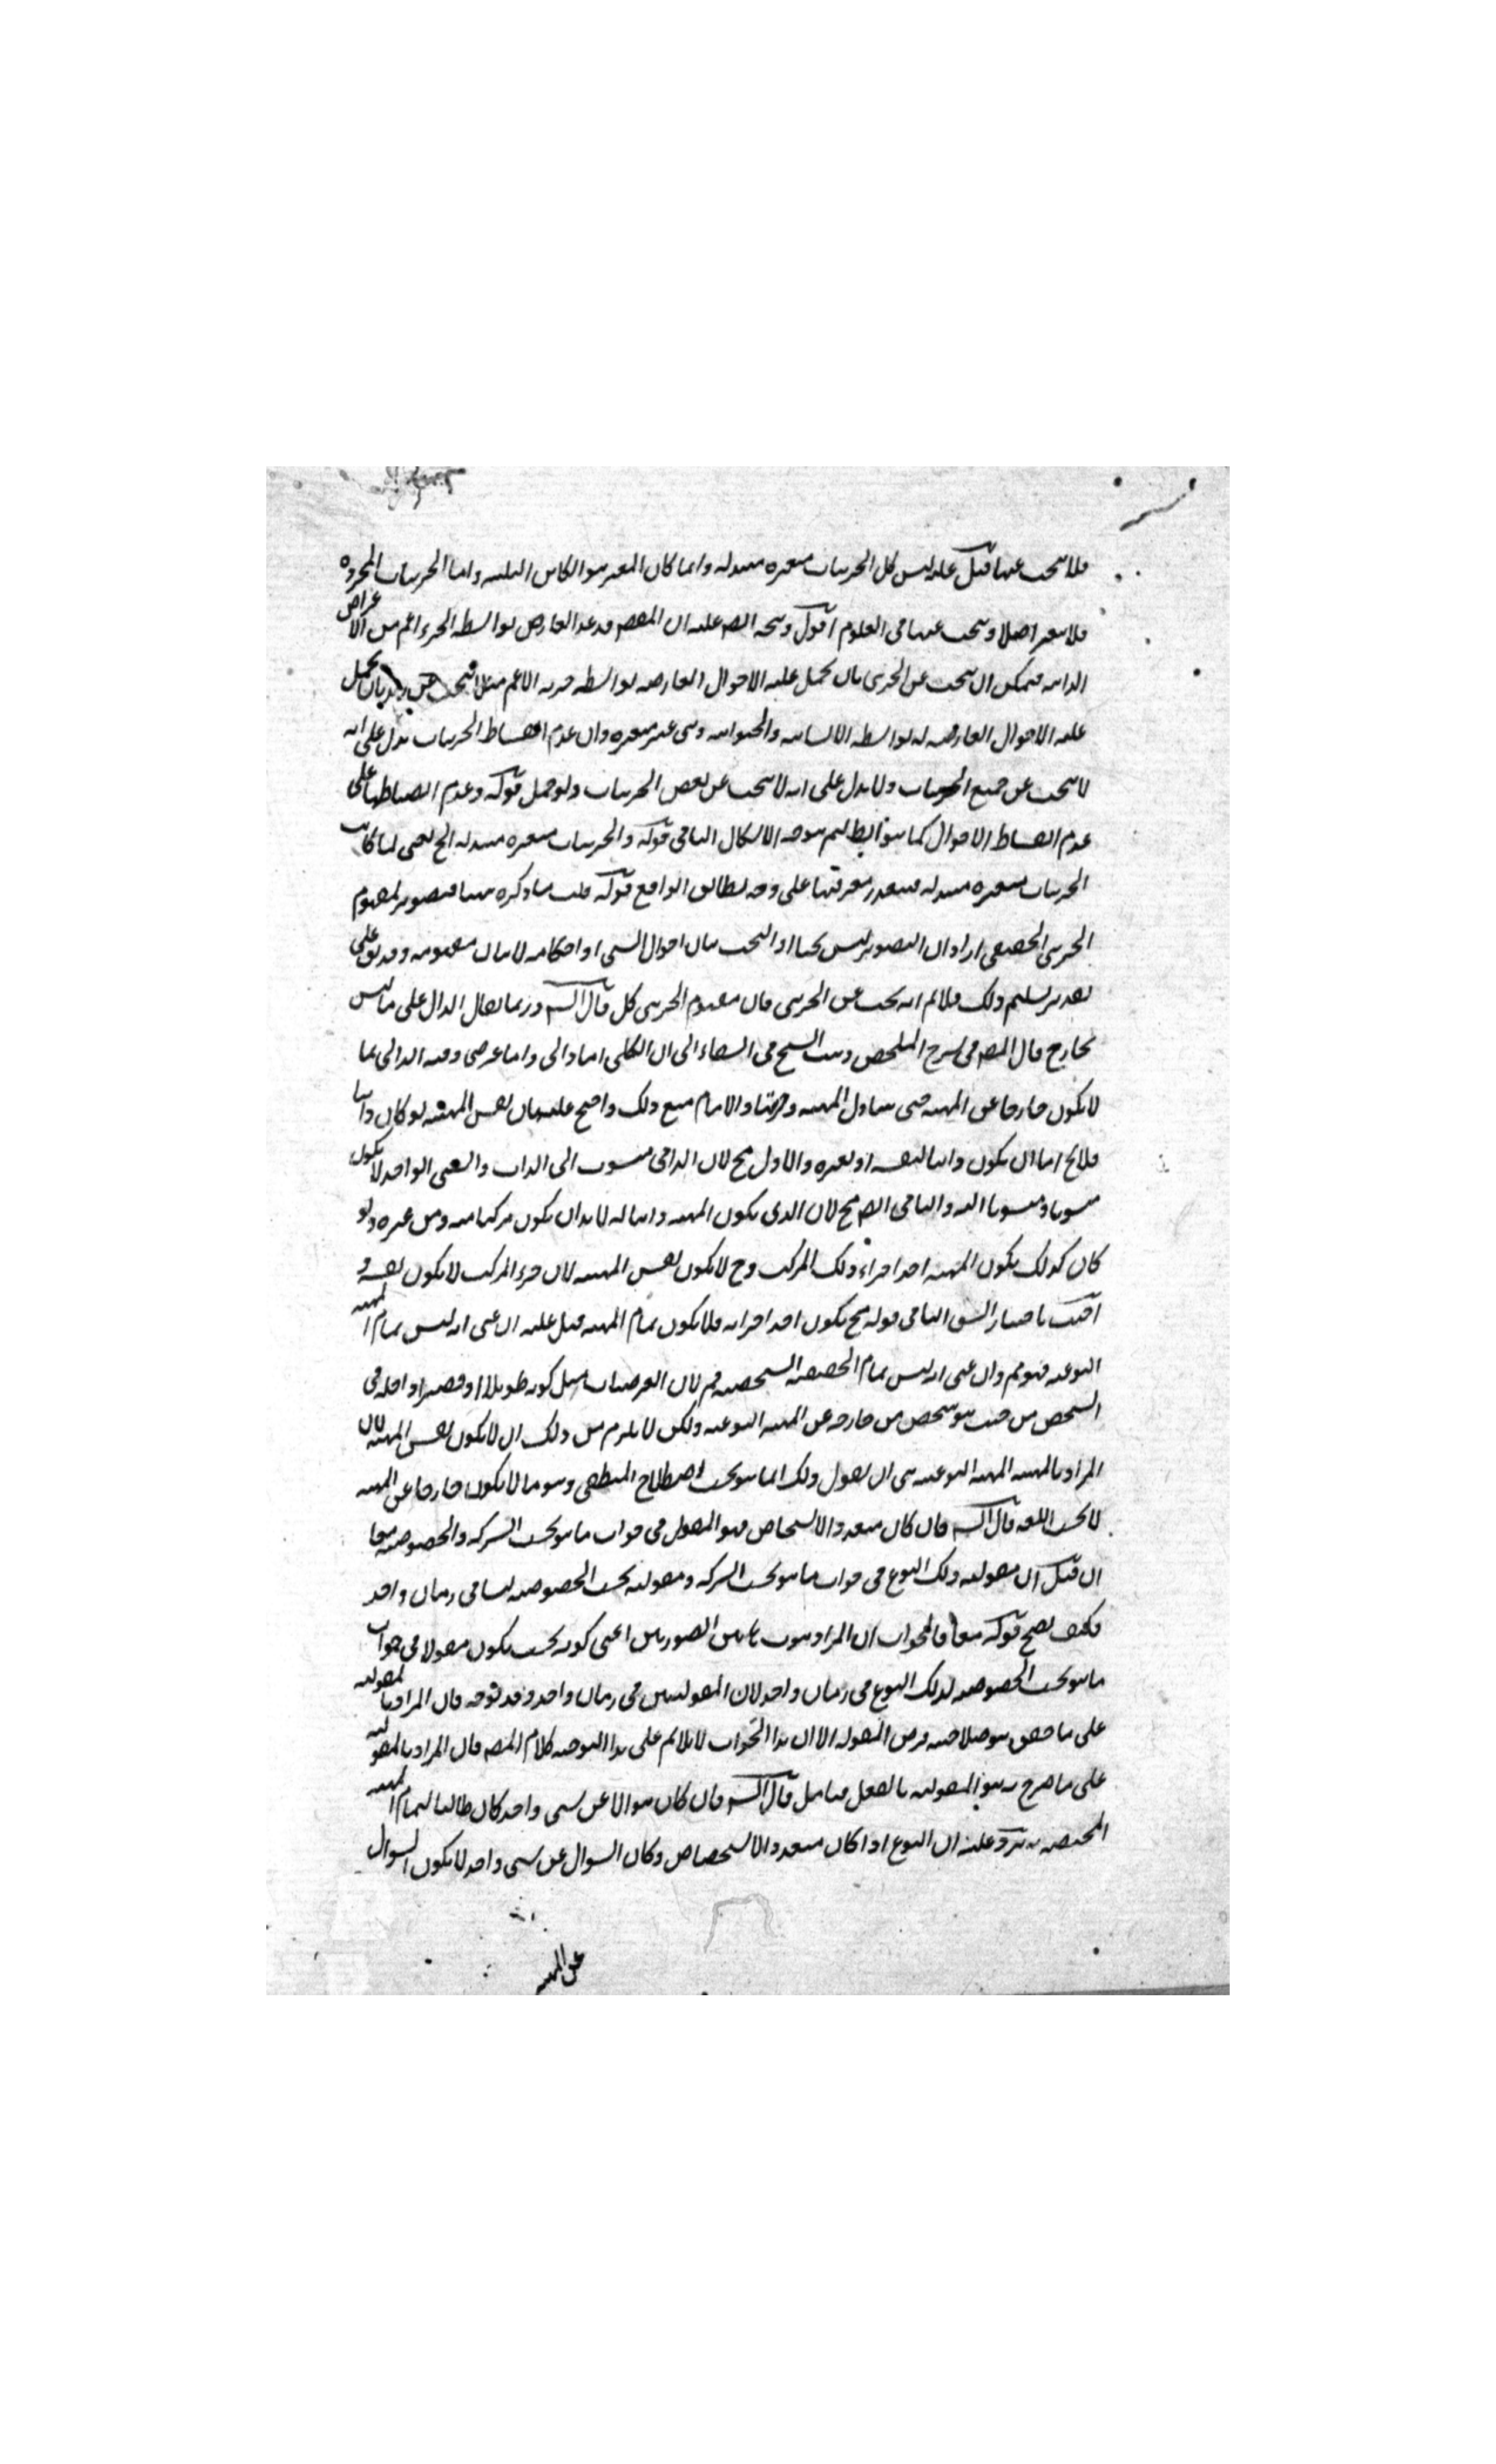 فلا يبحث عنها قيل عليه ليس كل الجزئيات متغيرة متبدلة وانما كان المتغير هو الكائن واما الجزئيات المجردة
فلا يتغير اصلا ويبحث عنها في العلوم اقول ويتجه ايضا عليه ان المصنف قد عد العارض بواسطة الجزء الاعم من الاعراض
الذاتية فيمكن ان يبحث عن الجزئي بان يحمل عليه الاحوال العارضة بواسطة جزئه الاعم مثلا يبحث عن زيد بان يحمل
عليه الاحوال العارضة له بواسطة الانسانية والحيوانية وهي غير متغيرة وان عدم انضباط الجزئيات يدل على انه
لا يبحث عن جميع الجزئيات ولا يدل على انه لا يبحث عن بعض الجزئيات ولو حمل قوله وعدم انضباطها على
عدم انضباط الاحوال كما هو الظ لم يتوجه الاشكال الثاني قوله والجزئيات متغيرة متبدلة الخ يعني لما كانت
الجزئيات متغيرة متبدلة فيتعذر معرفتها على وجه يطابق الواقع قوله قلت ما ذكره ههنا تصوير لمفهوم
الجزئي الحقيقي اراد ان التصوير ليس بحثا اذ البحث بيان احوال الشيء او احكامه لا بيان مفهومه وقد يق على
تقدير تسليم ذلك فلا نم انه بحث عن الجزئي فان مفهوم الجزئي كلي قال الش وربما يقال الذاتي على ما ليس
بخارج قال المص في شرح الملخص ذهب الشيخ في الشفاء الى ان الكلي اما ذاتي واما عرضي وفسر الذاتي بما
لا يكون خارجا عن المهية حتى يتناول المهية وجزئها والامام منع ذلك واحتج عليه بان نفس المهية لو كان ذاتيا
فلا يخ اما ان يكون ذاتيا لنفسه او لغيره والاول مح لان الذاتي منسوب الى الذات والشيء الواحد لا يكون
منسوبا ومنسوبا اليه والثاني ايضا مح لان الذي يكون المهية ذاتيا له لا بد ان يكون مركبا منه ومن غيره ولو
كان كذلك يكون المهية احد اجزاء ذلك المركب وح لا يكون نفس المهية لان جزء المركب لا يكون نفسه و
اجيب باختيار الشق الثاني قوله ح يكون احد اجزائه فلا يكون تمام المهية قيل عليه ان عنى انه ليس تمام المهية
النوعية فهو مم وان عنى انه ليس تمام الحقيقة الشخصية فم لان العرضيات مثل كونه طويلا او قصيرا داخلة في
الشخص من حيث هو شخص خارجة عن المهية النوعية ولكن لا يلزم من ذلك ان لا يكون نفس المهية لان
المراد بالمهية المهية النوعية ان يقول ذلك انما هو بحسب اصطلاح المنطقي وهو ما لا يكون خارجا عن المهية
لا بحسب اللغة قال الش فان كان متعدد الاشخاص فهو المقول في جواب ما هو بحسب الشركة والخصوصية معا
ان قيل ان مقولية ذلك النوع في جواب ما هو بحسب الشركة ومقوليته بحسب الخصوصية ليسا في زمان واحد
فكيف يصح قوله معا فالجواب ان المراد ثبوت هاتين الصورتين اعني كونه بحسب يكون مقولا في جواب
ما هو بحسب الخصوصية لذلك النوع في زمان واحد لان المقوليتين في زمان واحد وقد توجه فان المراد بالمقولية
على ما حقق هو صلاحية فرض المقولية الا ان هذا الجواب لا يلائم على هذا التوجيه كلام المص فان المراد بالمقولية
على ما صرح به هو المقولية بالفعل فتأمل قال الش فان كان سوالا عن شيء واحد كان طالبا لتمام المهية
المختصة به يرد عليه ان النوع اذا كان متعدد الاشخاص وكان السوال عن شيء واحد لا يكون السوال
عن المهية